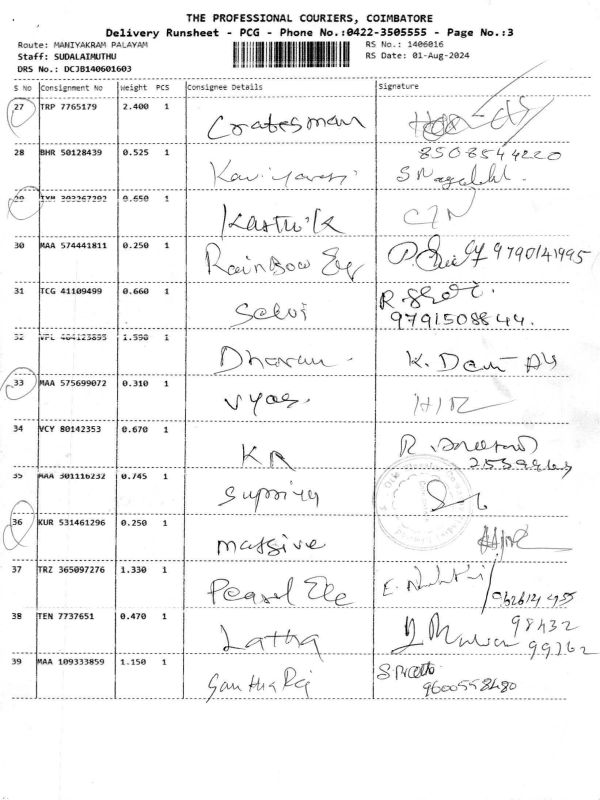 THE PROFESSIONAL COURIERS, COIMBATORE
Delivery Runsheet - PCG - Phone No.:0422-3505555 - Page No.:3
Route: MANIYAKRAM PALAYAM RS No.: 1406016
Staff: SUDALAIMUTHU RS Date: 01-Aug-2024
DRS No.: DCJB140601603
S No Consignment No Weight PCS Consignee Details Signature
27 TRP 7765179 2.400 1 Cratesman
8508544220
28 BHR 50128439 0.525 1
29 303267292 0.650 1 Karthik
30 MAA 574441811 0.250 1 Rainbow 9790141995
31 TCG 41109499 0.660 1 Selvi
9791508844.
32 VPL 464123895 1.590 1 Dharun K.
33 MAA 575699072 0.310 1 Vyas
34 VCY 80142353 0.670 1 KR R
35 MAA 301116232 0.745 1 Supriya
36 KUR 531461296 0.250 1 Massive
37 TRZ 365097276 1.330 1 Pearl Ele E.
38 TEN 7737651 0.470 1 Latha 98432
99262
39 MAA 109333859 1.150 1
9600558480